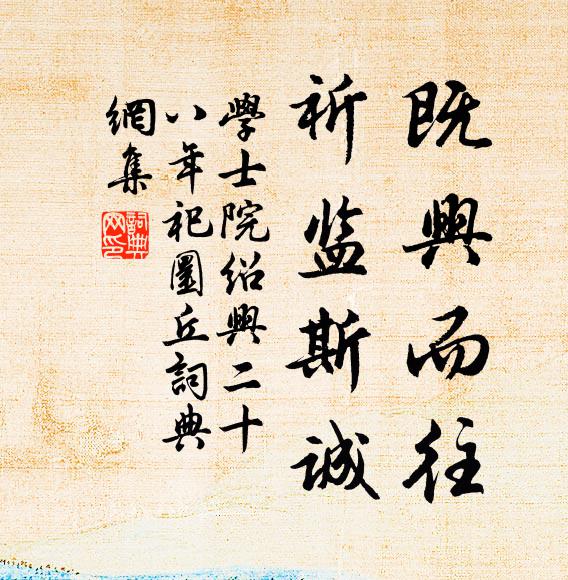 既興而往
祈监斯誠
學士院绍興二十
八年祀圜丘詞典
網集
詞典
网印